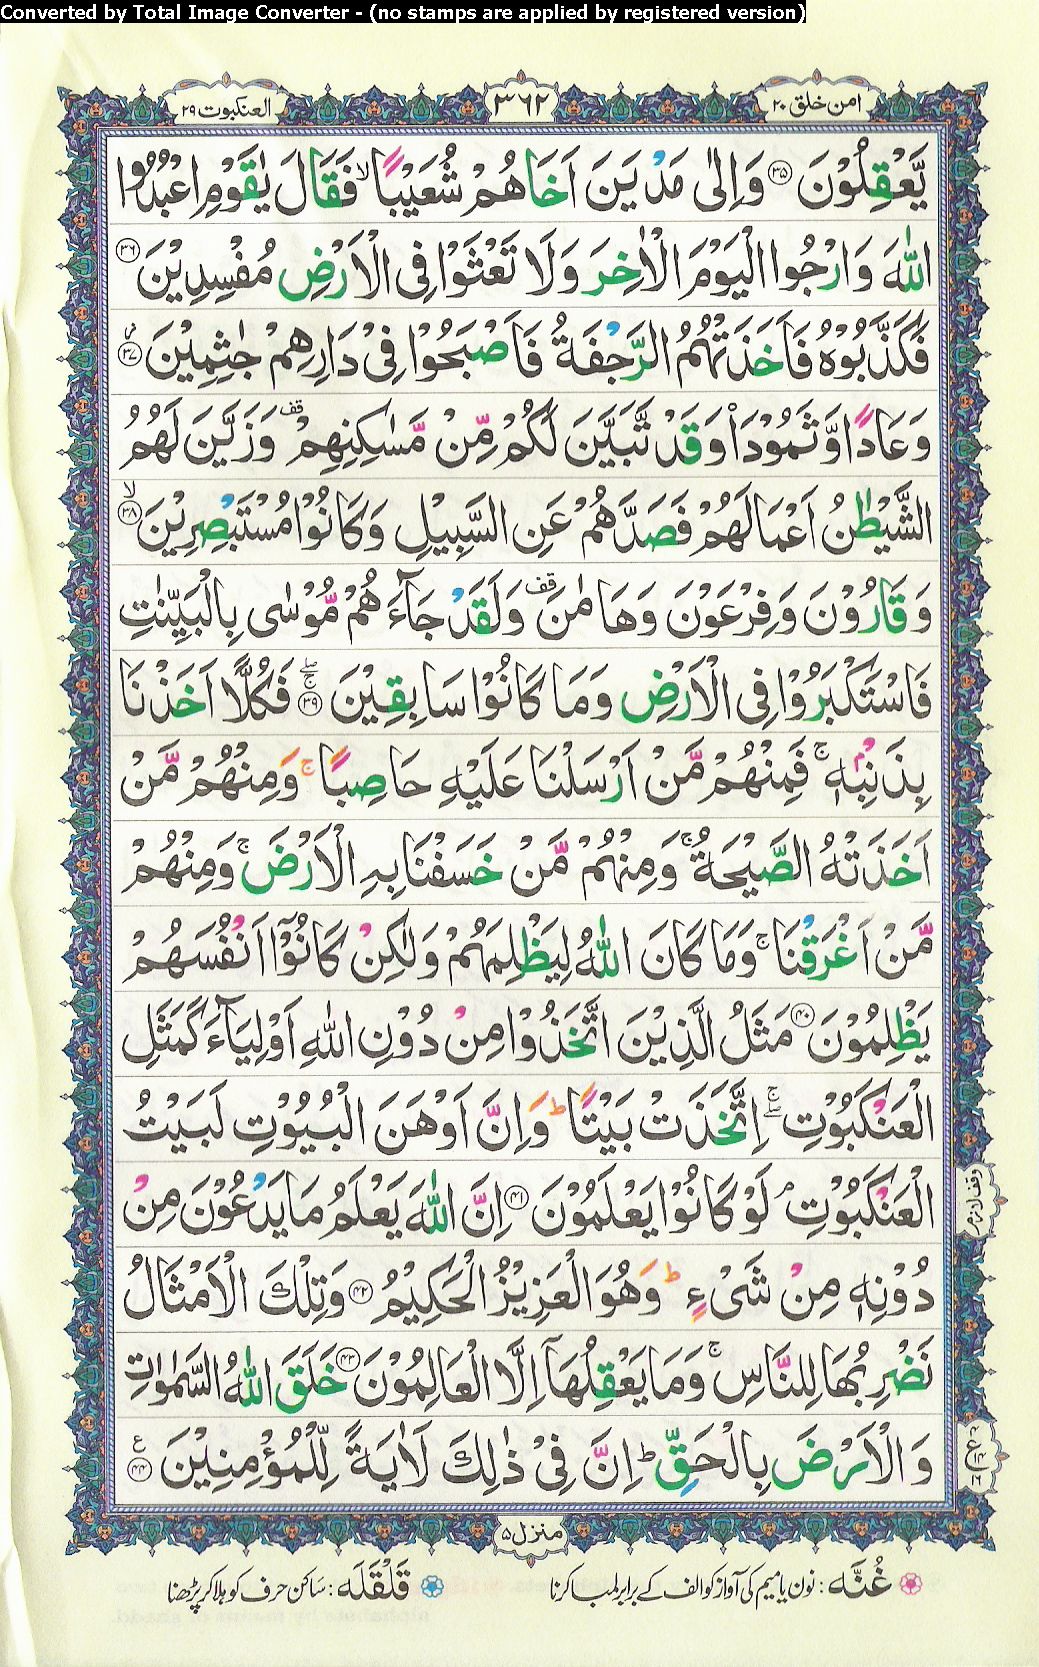 Converted by Total Image Converter - (no stamps are applied by registered version)
امن خلق ۲۰
۳۶۲
العنکبوت ۲۹
يَّعْقِلُوْنَ ﴿۳۵﴾ وَاِلٰى مَدْيَنَ اَخَاهُمْ شُعَيْبًا ۙ فَقَالَ يٰقَوْمِ اعْبُدُوا
اللّٰهَ وَارْجُوا الْيَوْمَ الْاٰخِرَ وَلَا تَعْثَوْا فِى الْاَرْضِ مُفْسِدِيْنَ ﴿۳۶﴾
فَكَذَّبُوْهُ فَاَخَذَتْهُمُ الرَّجْفَةُ فَاَصْبَحُوْا فِىْ دَارِهِمْ جٰثِمِيْنَ ﴿۳۷﴾
وَعَادًا وَّثَمُوْدَا۟ وَقَدْ تَّبَيَّنَ لَكُمْ مِّنْ مَّسٰكِنِهِمْ ۟قف وَزَيَّنَ لَهُمُ
الشَّيْطٰنُ اَعْمَالَهُمْ فَصَدَّهُمْ عَنِ السَّبِيْلِ وَكَانُوْا مُسْتَبْصِرِيْنَ ﴿۳۸﴾ ۙ
وَقَارُوْنَ وَفِرْعَوْنَ وَهَامٰنَ قف وَلَقَدْ جَآءَهُمْ مُّوْسٰى بِالْبَيِّنٰتِ
فَاسْتَكْبَرُوْا فِى الْاَرْضِ وَمَا كَانُوْا سَابِقِيْنَ ﴿۳۹﴾ ۖۚ فَكُلًّا اَخَذْنَا
بِذَنْۢبِهٖ ۚ فَمِنْهُمْ مَّنْ اَرْسَلْنَا عَلَيْهِ حَاصِبًا ۚ وَمِنْهُمْ مَّنْ
اَخَذَتْهُ الصَّيْحَةُ ۚ وَمِنْهُمْ مَّنْ خَسَفْنَا بِهِ الْاَرْضَ ۚ وَمِنْهُمْ
مَّنْ اَغْرَقْنَا ۚ وَمَا كَانَ اللّٰهُ لِيَظْلِمَهُمْ وَلٰكِنْ كَانُوْۤا اَنْفُسَهُمْ
يَظْلِمُوْنَ ﴿۴۰﴾ مَثَلُ الَّذِيْنَ اتَّخَذُوْا مِنْ دُوْنِ اللّٰهِ اَوْلِيَآءَ كَمَثَلِ
الْعَنْكَبُوْتِ ۖۚ اِتَّخَذَتْ بَيْتًا ؕ وَاِنَّ اَوْهَنَ الْبُيُوْتِ لَبَيْتُ
الْعَنْكَبُوْتِ ۘ لَوْ كَانُوْا يَعْلَمُوْنَ ﴿۴۱﴾ اِنَّ اللّٰهَ يَعْلَمُ مَا يَدْعُوْنَ مِنْ
دُوْنِهٖ مِنْ شَىْءٍ ؕ وَهُوَ الْعَزِيْزُ الْحَكِيْمُ ﴿۴۲﴾ وَتِلْكَ الْاَمْثَالُ
نَضْرِبُهَا لِلنَّاسِ ۚ وَمَا يَعْقِلُهَاۤ اِلَّا الْعَالِمُوْنَ ﴿۴۳﴾ خَلَقَ اللّٰهُ السَّمٰوٰتِ
وَالْاَرْضَ بِالْحَقِّ ؕ اِنَّ فِىْ ذٰلِكَ لَاٰيَةً لِّلْمُؤْمِنِيْنَ ﴿۴۴﴾ ع
وقف لازم
ع
منزل ۵
غُنَّه : نون یا میم کی آواز کو الف کے برابر لمبا کرنا
قَلْقَلَه : ساکن حرف کو ہلا کر پڑھنا